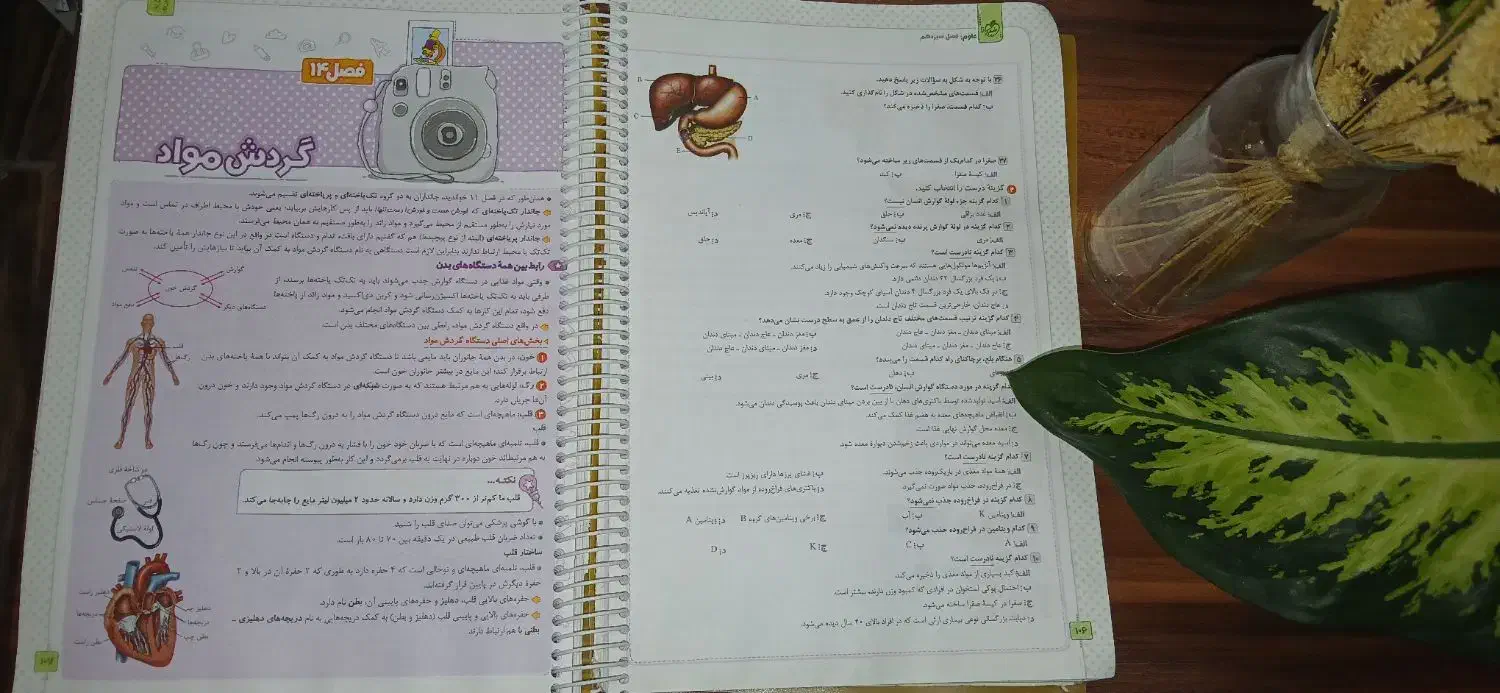 علوم: فصل سیزدهم
۳۶ با توجه به شکل به سؤالات زیر پاسخ دهید.
الف: قسمت‌های مشخص‌شده در شکل را نام‌گذاری کنید.
ب: کدام قسمت، صفرا را ذخیره می‌کند؟
B
A
C
D
E
۳۷ صفرا در کدام‌یک از قسمت‌های زیر ساخته می‌شود؟
الف: کیسهٔ صفرا ب: کبد
گزینهٔ درست را انتخاب کنید.
۱ کدام گزینه جزء لولهٔ گوارش انسان نیست؟
الف: غدد بزاقی ب: حلق ج: مری د: آپاندیس
۲ کدام گزینه در لولهٔ گوارش پرنده دیده نمی‌شود؟
الف: مری ب: سنگدان ج: معده د: حلق
۳ کدام گزینه نادرست است؟
الف: آنزیم‌ها مولکول‌هایی هستند که سرعت واکنش‌های شیمیایی را زیاد می‌کنند.
ب: یک فرد بزرگسالی ۳۲ دندان دائمی دارد.
ج: در فک بالای یک فرد بزرگسال ۴ دندان آسیای کوچک وجود دارد.
د: عاج دندان، خارجی‌ترین قسمت تاج دندان است.
۴ کدام گزینه ترتیب قسمت‌های مختلف تاج دندان را از عمق به سطح درست نشان می‌دهد؟
الف: مینای دندان ـ مغز دندان ـ عاج دندان ب: مغز دندان ـ عاج دندان ـ مینای دندان
ج: عاج دندان ـ مغز دندان ـ مینای دندان د: مغز دندان ـ مینای دندان ـ عاج دندان
۵ هنگام بلع، برچاکنای راه کدام قسمت را می‌بندد؟
ب: دهان ج: مری د: بینی
گزینه در مورد دستگاه گوارش انسان، نادرست است؟
الف: اسید تولیدشده توسط باکتری‌های دهان با از بین بردن مینای دندان باعث پوسیدگی دندان می‌شود.
ب: انقباض ماهیچه‌های معده به هضم غذا کمک می‌کند.
ج: معده محل گوارش نهایی غذا است.
د: اسید معده می‌تواند در مواردی باعث زخم‌شدن دیوارهٔ معده شود.
۷ کدام گزینه نادرست است؟
الف: همهٔ مواد مغذی در باریک‌روده جذب می‌شوند. ب: غشای پرزها دارای ریزپرز است.
ج: در فراخ‌روده، جذب مواد صورت نمی‌گیرد. د: باکتری‌های فراخ‌روده از مواد گوارش‌نشده تغذیه می‌کنند.
۸ کدام گزینه در فراخ‌روده جذب نمی‌شود؟
الف: ویتامین K ب: آب ج: برخی ویتامین‌های گروه B د: ویتامین A
۹ کدام ویتامین در فراخ‌روده جذب می‌شود؟
الف: A ب: C ج: K د: D
۱۰ کدام گزینه نادرست است؟
الف: کبد بسیاری از مواد مغذی را ذخیره می‌کند.
ب: احتمال پوکی استخوان در افرادی که کمبود وزن دارند، بیشتر است.
ج: صفرا در کیسهٔ صفرا ساخته می‌شود.
د: دیابت بزرگسالی نوعی بیماری ارثی است که در افراد بالای ۴۰ سال دیده می‌شود.
۱۰۶
فصل ۱۴
گردش مواد
همان‌طور که در فصل ۱۱ خواندید، جانداران به دو گروه تک‌یاخته‌ای و پریاخته‌ای تقسیم می‌شوند.
مورد نیازش را به‌طور مستقیم از محیط می‌گیرد و مواد زائد را به‌طور مستقیم به همان محیط می‌فرستد.
تک‌تک با محیط ارتباط ندارند بنابراین لازم است دستگاهی به نام دستگاه گردش مواد به کمک آن بیاید تا نیازهایش را تأمین کند.
رابط بین همهٔ دستگاه‌های بدن
وقتی مواد غذایی در دستگاه گوارش جذب می‌شوند باید به تک‌تک یاخته‌ها برسند، از
طرفی باید به تک‌تک یاخته‌ها اکسیژن‌رسانی شود و کربن دی‌اکسید و مواد زائد از یاخته‌ها
دفع شود، تمام این کارها به کمک دستگاه گردش مواد انجام می‌شود.
در واقع دستگاه گردش مواد، رابطی بین دستگاه‌های مختلف بدن است.
گوارش
تنفس
گردش خون
دستگاه‌های دیگر
دفع مواد
بخش‌های اصلی دستگاه گردش مواد
۱ خون: در بدن همهٔ جانوران باید مایعی باشد تا دستگاه گردش مواد به کمک آن بتواند با همهٔ یاخته‌های بدن
ارتباط برقرار کند؛ این مایع در بیشتر جانوران خون است.
۲ رگ: لوله‌هایی به هم مرتبط هستند که به صورت شبکه‌ای در دستگاه گردش مواد وجود دارند و خون درون
آن‌ها جریان دارد.
۳ قلب: ماهیچه‌ای است که مایع درون دستگاه گردش مواد را به درون رگ‌ها پمپ می‌کند.
قلب
رگ‌ها
قلب
قلب، تلمبه‌ای ماهیچه‌ای است که با ضربان خود خون را با فشار به درون رگ‌ها و اندام‌ها می‌فرستد و چون رگ‌ها
به هم مرتبط‌اند خون دوباره در نهایت به قلب برمی‌گردد و این کار به‌طور پیوسته انجام می‌شود.
نکته...
قلب ما کم‌تر از ۳۰۰ گرم وزن دارد و سالانه حدود ۲ میلیون لیتر مایع را جابه‌جا می‌کند.
صفحهٔ حساس
لولهٔ لاستیکی
با گوشی پزشکی می‌توان صدای قلب را شنید.
تعداد ضربان قلب طبیعی در یک دقیقه بین ۷۰ تا ۸۰ بار است.
ساختار قلب
قلب، تلمبه‌ای ماهیچه‌ای و توخالی است که ۴ حفره دارد به طوری که ۲ حفرهٔ آن در بالا و ۲
حفرهٔ دیگرش در پایین قرار گرفته‌اند.
حفره‌های بالایی قلب، دهلیز و حفره‌های پایینی آن، بطن نام دارد.
حفره‌های بالایی و پایینی قلب (دهلیز و بطن) به کمک دریچه‌هایی به نام دریچه‌های دهلیزی ـ
بطنی با هم ارتباط دارند.
دهلیز راست
دهلیز چپ
دریچه‌ها
دریچه‌ها
بطن راست
بطن چپ